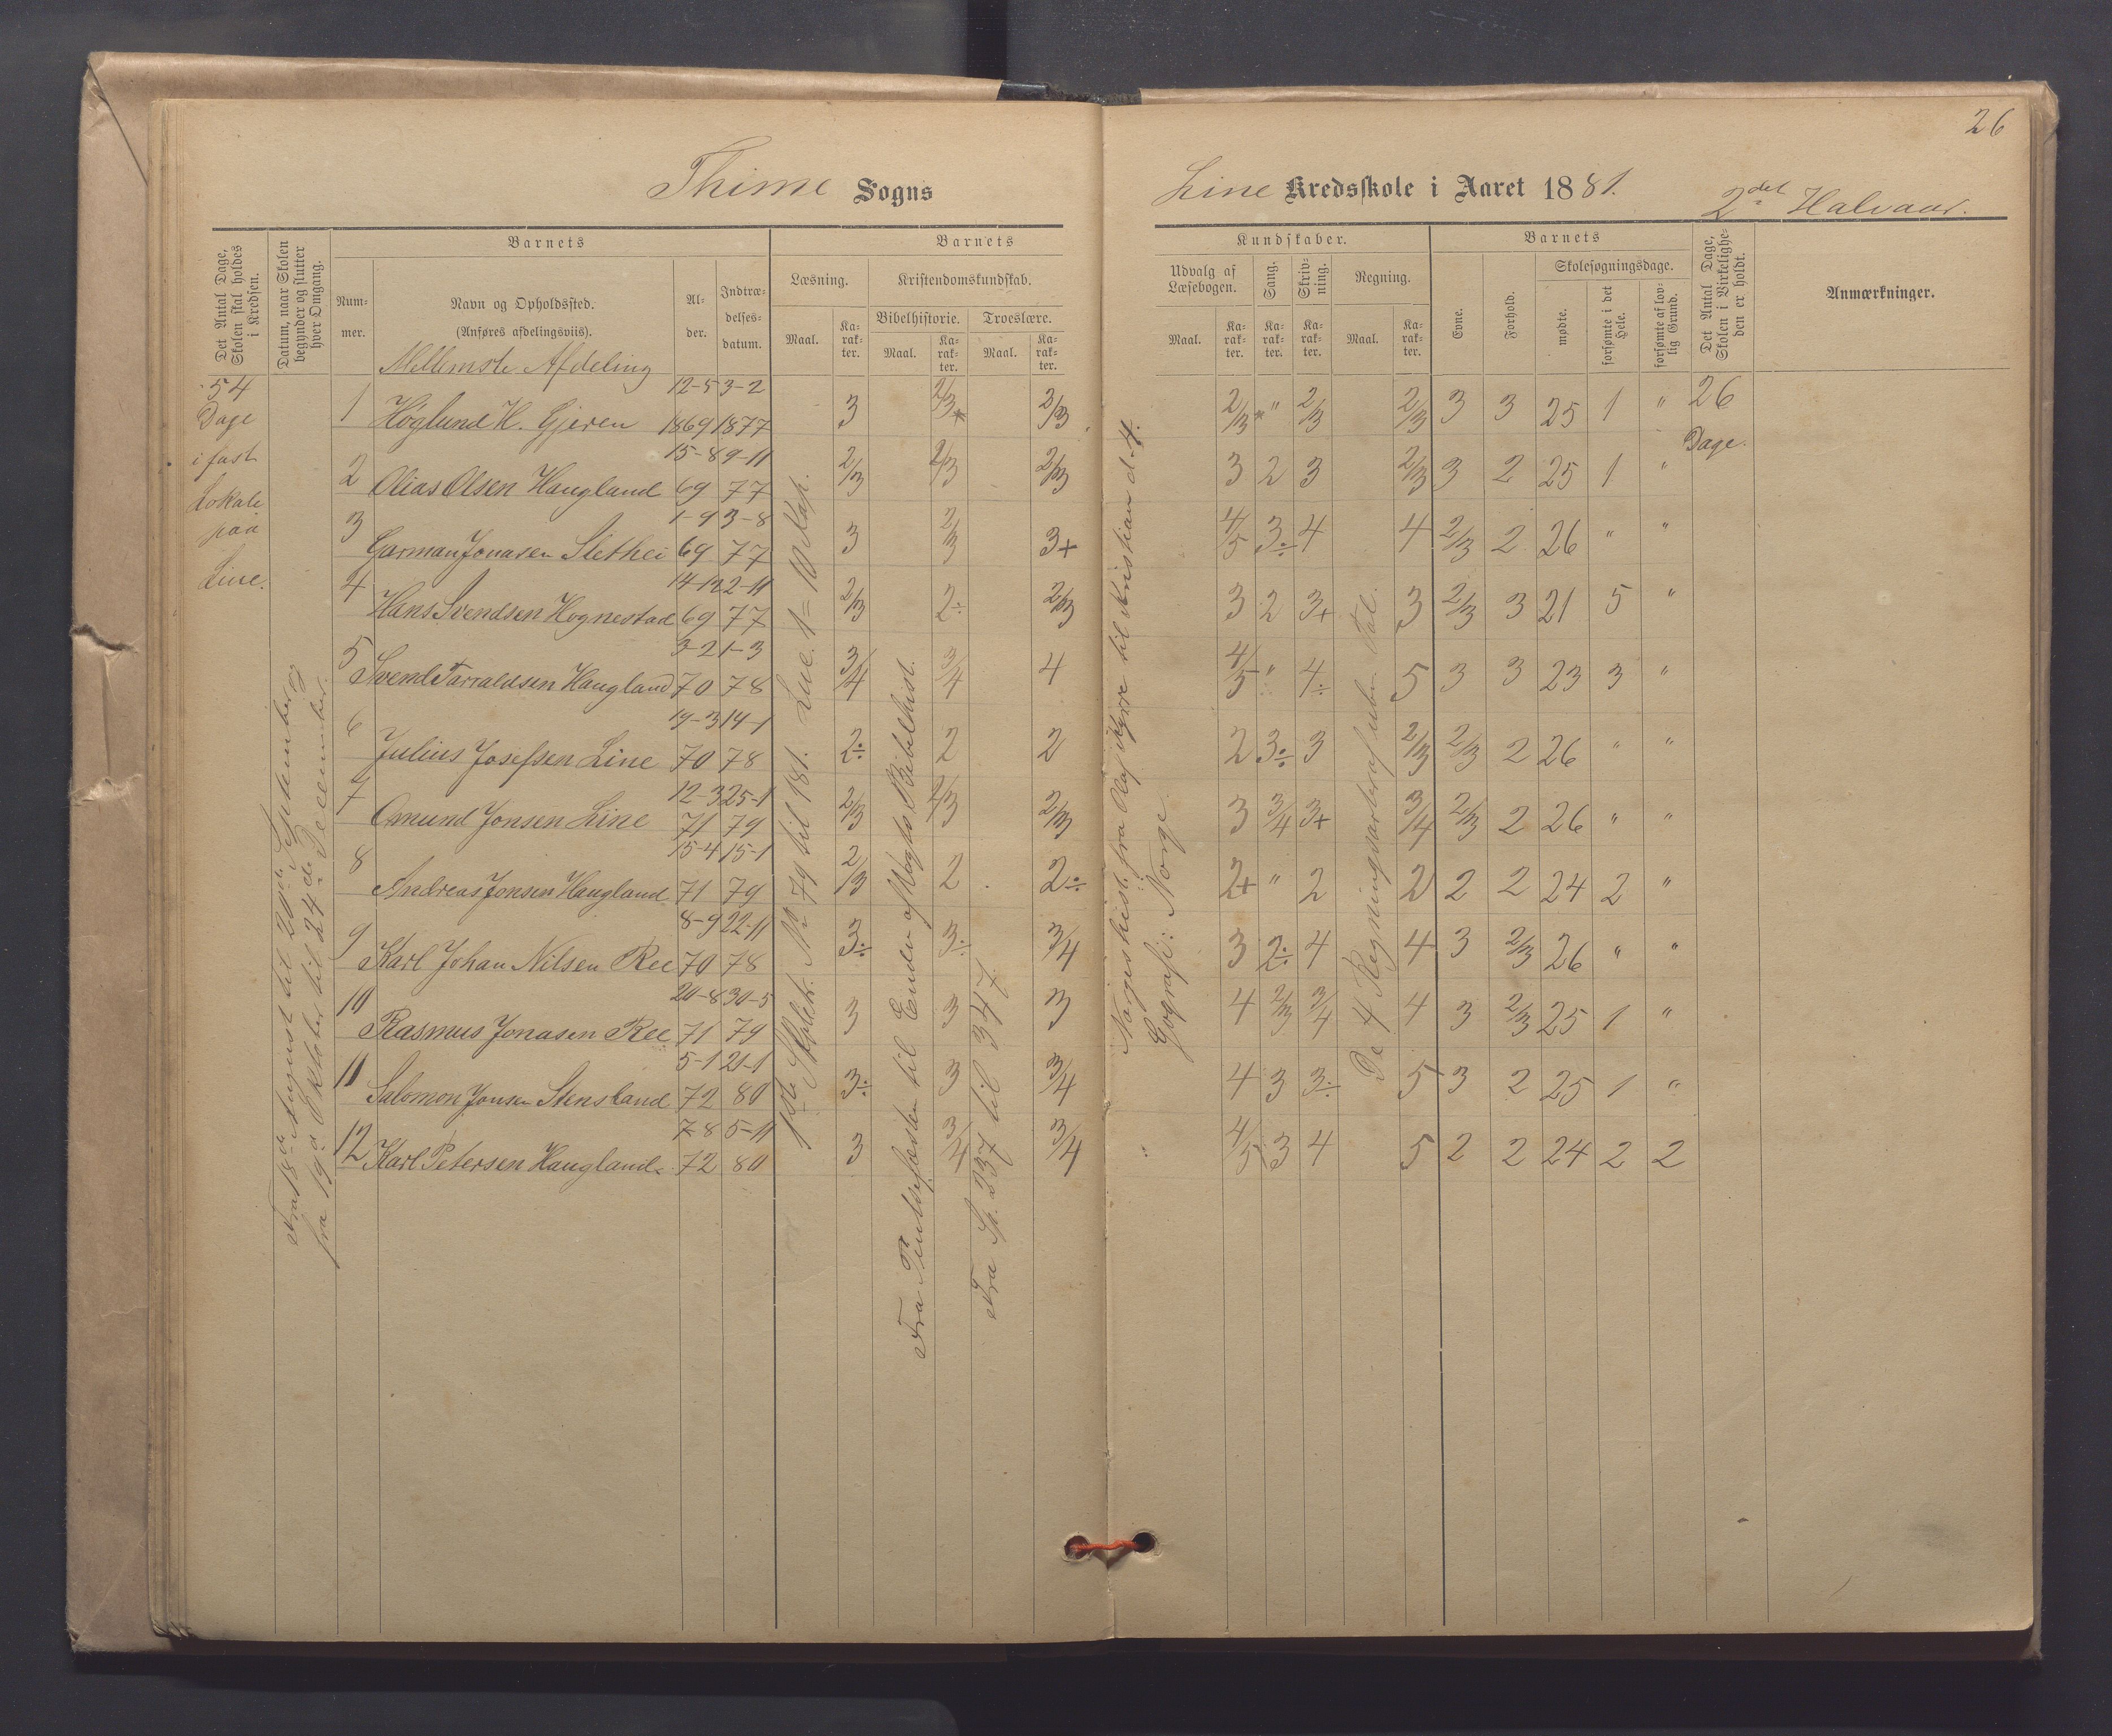 26
Thime Sogns
Line Kredsskole i Aaret 1881. 2det Halvaar.
Det Antal Dage, Skolen skal holdes i Kredsen.
Datum, naar Skolen begynder og slutter hver Omgang.
Barnets
Num-mer.
Navn og Opholdssted.
(Anføres afdelingsviis).
Al-der.
Indtræ-delses-datum.
Barnets
Læsning.
Maal.
Ka-rak-ter.
Kristendomskundskab.
Bibelhistorie.
Maal.
Ka-rak-ter.
Troeslære.
Maal.
Ka-rak-ter.
Kundskaber.
Udvalg af Læsebogen.
Maal.
Ka-rak-ter.
Sang.
Ka-rak-ter.
Skriv-ning.
Ka-rak-ter.
Regning.
Maal.
Ka-rak-ter.
Barnets
Evne.
Forhold.
Skolesøgningsdage.
mødte.
forsømte i det Hele.
forsømte af lov-lig Grund.
Det Antal Dage, Skolen i Virkelighe-den er holdt.
Anmærkninger.
Mellemste Afdeling
54
Dage
i fast
Lokale
paa
Line.
Fra 18de August til 20de September og
fra 19de Oktober til 24de December.
1 Höglund H. Gjeren 12-5 1869 3-2 1877 3 2/3* 2/3 2/3* " 2/3 2/3 3 3 25 1 " 26 Dage.
2 Olias Olsen Haugland 15-8 69 9-11 77 2/3 2/3 2/3 3 2 3 2/3 3 2 25 1 "
3 Garman Jonasen Slethei 1-9 69 3-8 77 3 2/3 3+ 4/5 3÷ 4 4 2/3 2 26 " "
4 Hans Svendsen Hognestad 14-12 69 2-11 77 2/3 2÷ 2/3 3 2 3+ 3 2/3 3 21 5 "
5 Svend Tarraldsen Haugland 3-2 70 1-3 78 3/4 3/4 4 4/5 " 4÷ 5 3 3 23 3 "
6 Julius Josefsen Line 19-3 70 14-1 78 2÷ 2 2 2 3÷ 3 2/3 2/3 2 26 " "
7 Omund Jonsen Line 12-3 71 25-1 79 2/3 2/3 2/3 3 3/4 3+ 3/4 2/3 2 26 " "
8 Andreas Jonsen Haugland 15-4 71 15-1 79 2/3 2 2÷ 2+ " 2 2 2 2 24 2 "
9 Karl Johan Nilsen Ree 8-9 70 22-11 78 3÷ 3÷ 3/4 3 2÷ 4 4 3 2/3 26 " "
10 Rasmus Jonasen Ree 20-8 71 30-5 79 3 3 3 4 2/3 3/4 4 3 2/3 25 1 "
11 Salomon Jonsen Stensland 5-1 72 21-1 80 3÷ 3 3/4 4 3 3÷ 5 3 2 25 1 "
12 Karl Petersen Haugland 7-8 72 5-11 80 3 3/4 3/4 4/5 3 4 5 2 2 24 2 2
1ste Skolet. No 79 til 181. Luc. 1=10 Kap.
Fra Pintsefesten til Enden af Vogts Bibelhist.
Fra Sp. 237 til 347
Norgeshist. fra Olaf Kyrre til Kristian d. 4.
Geografi: Norge.
De 4 Regningsarter af uben. Tal.